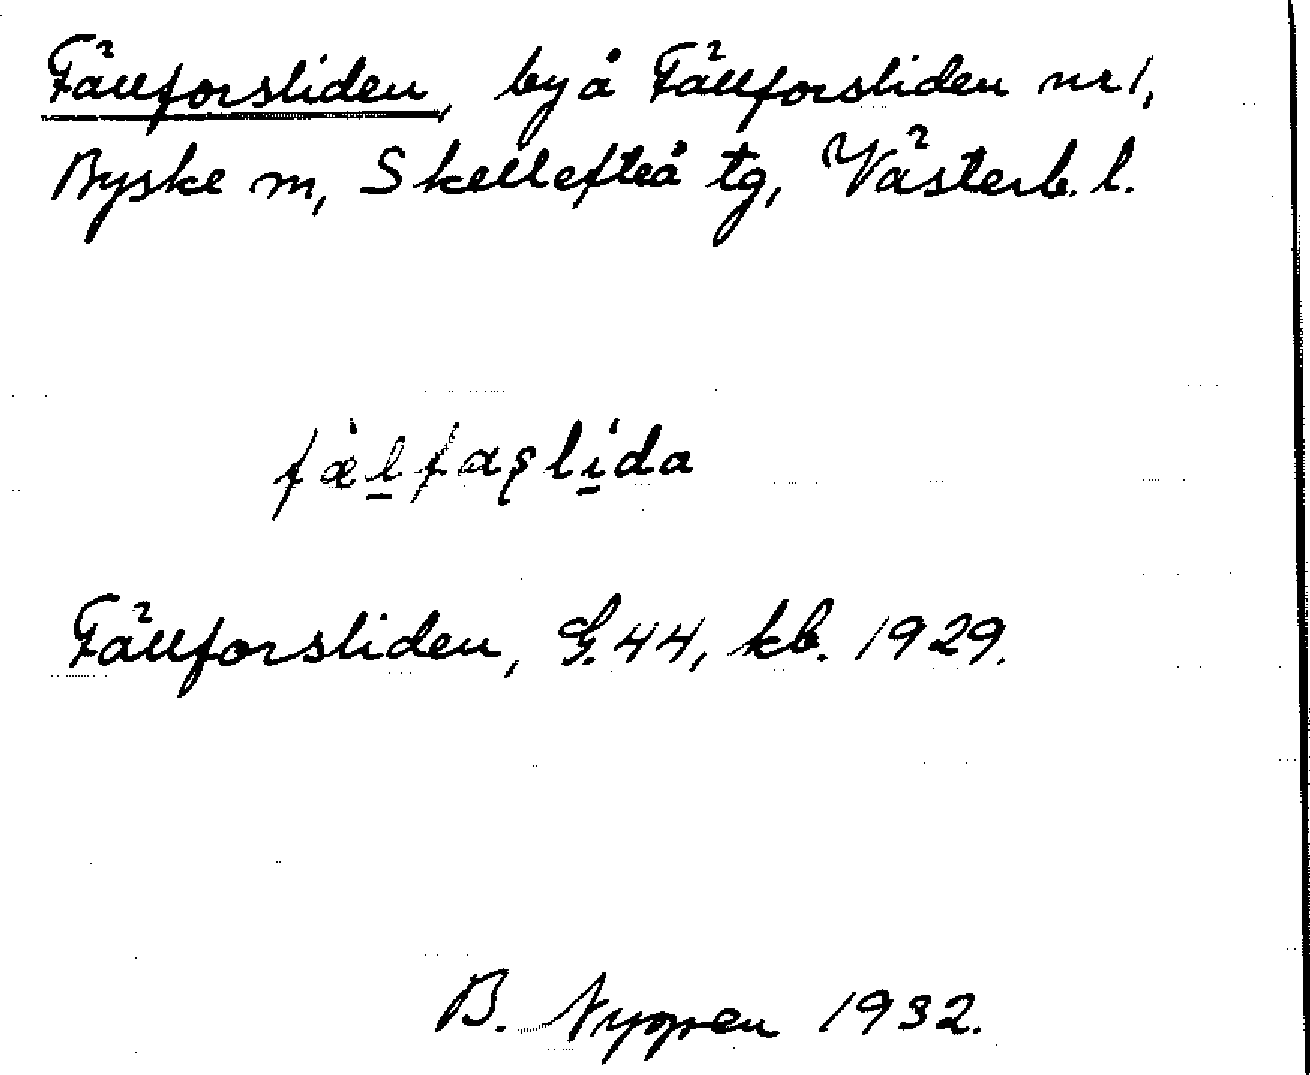 Fällforsliden, by å Fällforsliden nr 1,
Byske sn, Skellefteå tg, Västerb. l.
fälfaslida
Fällforsliden, G. 44, kb. 1929.
B. Nygren 1932.